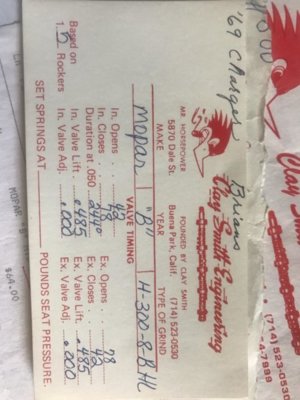 '69 Charger
Brians
Clay Smith Engineering
MR. HORSEPOWER FOUNDED BY CLAY SMITH
5870 Dale St. Buena Park, Calif. (714) 523-0530
MAKE YEAR TYPE OF GRIND
Mopar "B" H-300-8-BHL
VALVE TIMING
In. Opens 42 Ex. Opens 78
In. Closes 78 Ex. Closes 42
Duration at .050
In. Valve Lift .485 Ex. Valve Lift .485
In. Valve Adj. .000 Ex. Valve Adj. .000
Based on
1.5 Rockers
SET SPRINGS AT POUNDS SEAT PRESSURE.
Clay S
(714) 523-0530
MOPAR
$64.00